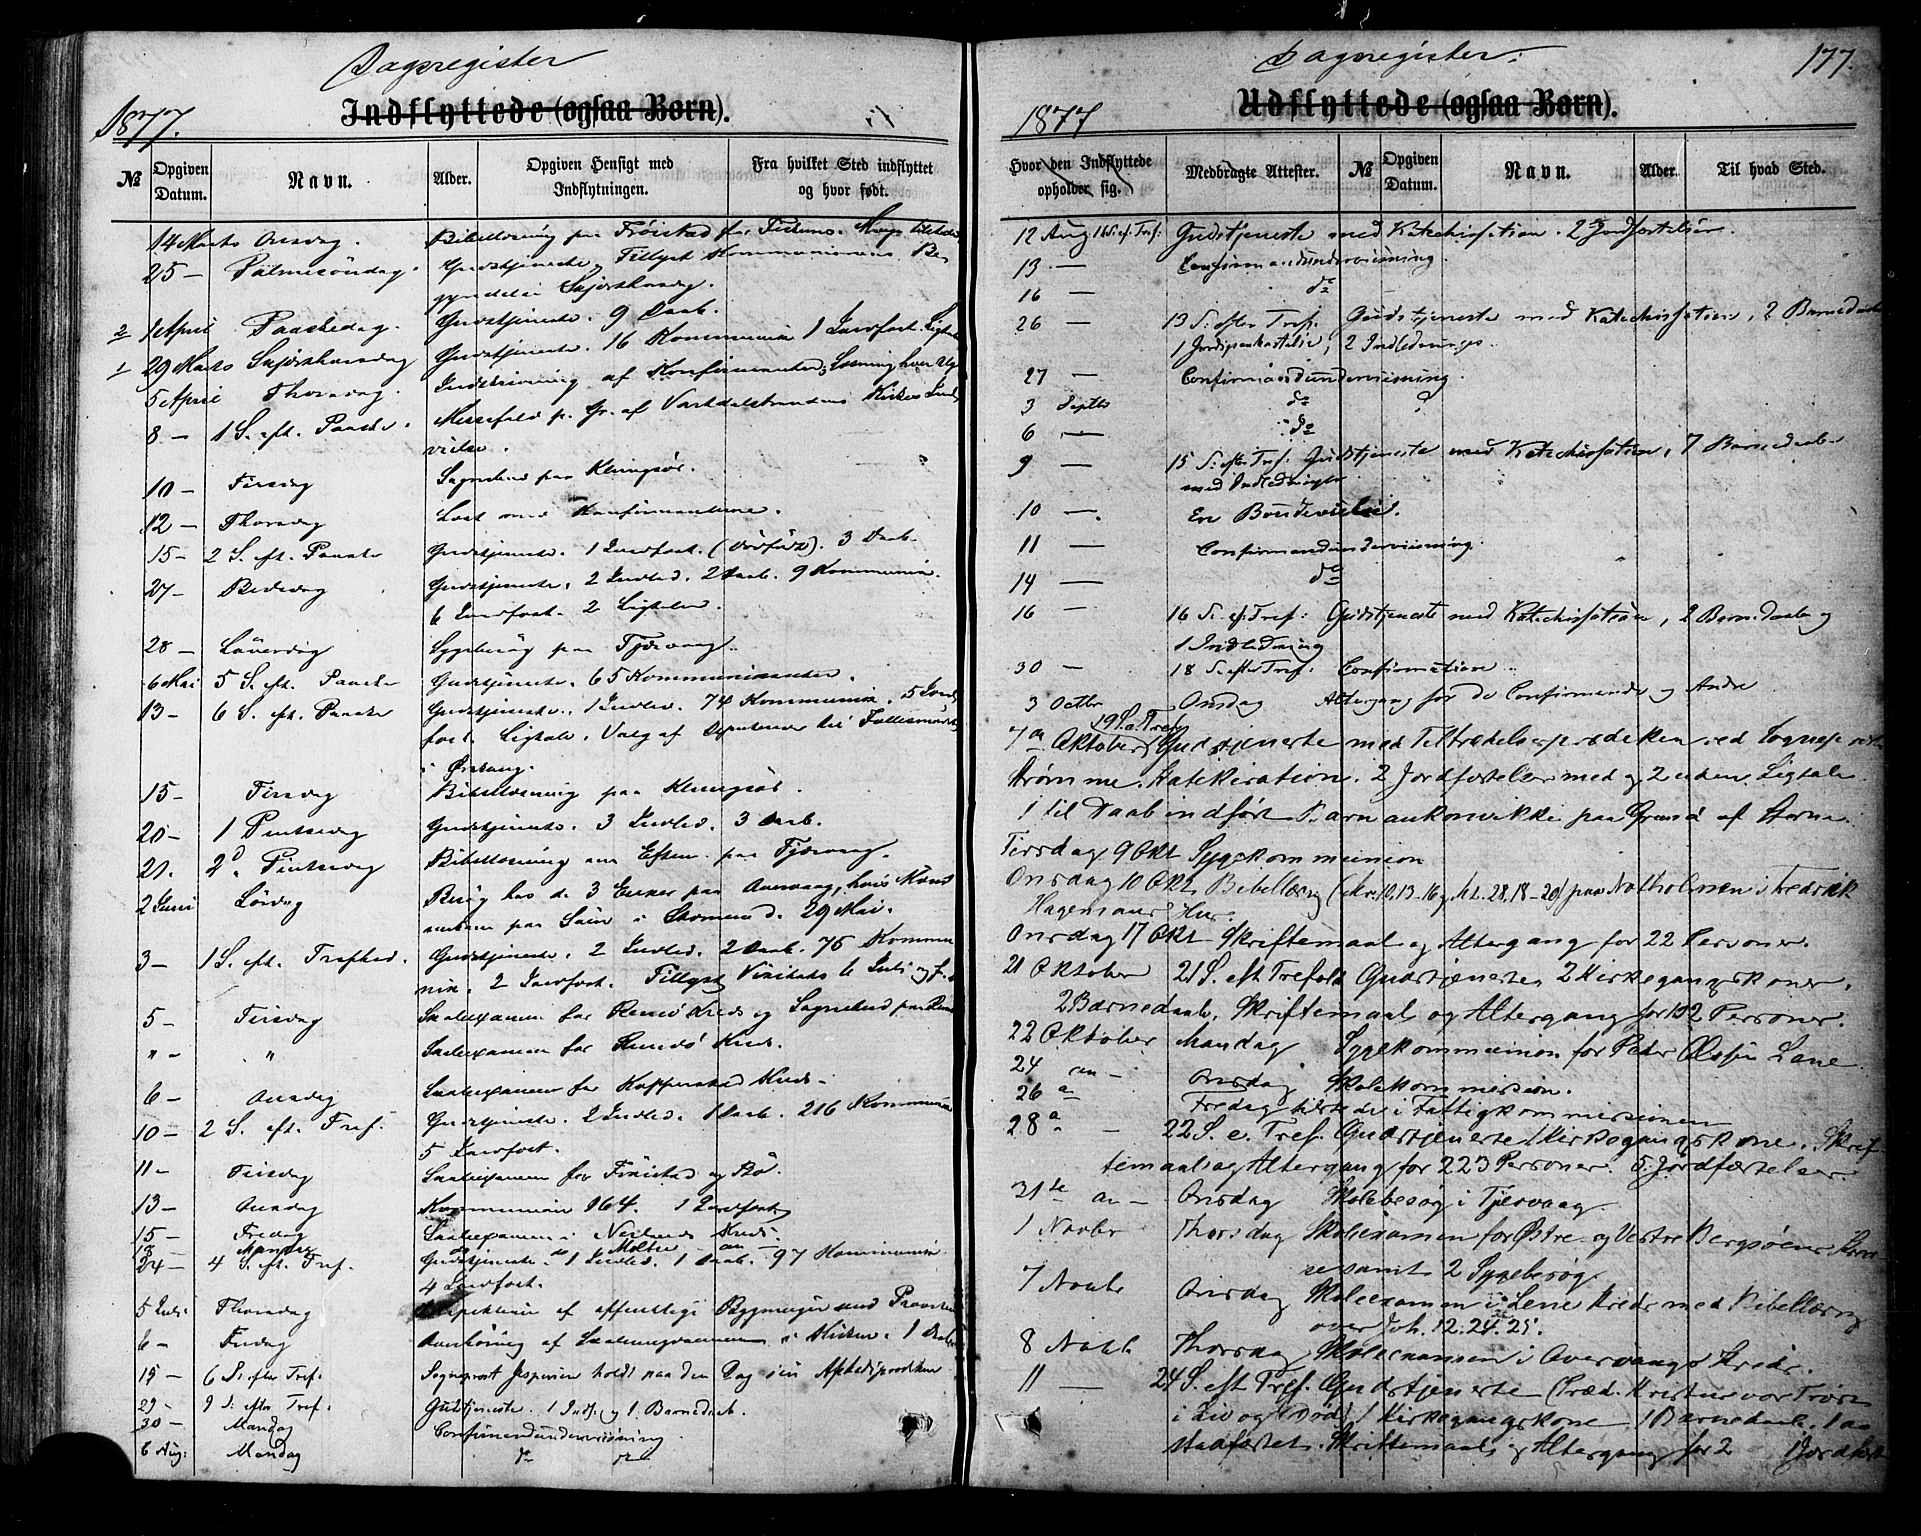 Dagsregister
1877.
Indflyttede (ogsaa Børn).
№
Opgiven Datum.
Navn.
Alder.
Opgiven Hensigt med Indflytningen.
Fra hvilket Sted indflyttet og hvor født.
14 Marts Onsdag. Bibellæsning paa Frøistad
25 — Palmesöndag. Gudstjeneste, Tillyst
Skjærthorsdag.
2 1 April Paaskedag. Gudstjeneste. 9 Daab.
1 29 Marts Skjærthorsdag Gudstjeneste. 16 Kommunik. 1 Jordfæst. Ligtale
5 April Thorsdag. Indskrivning af Konfirmanter;
8 — 1 S. eft. Paaske. Messefald p. Gr. af Vartdalstrandens Kirkes Ind-
vielse.
10 — Tirsdag
12 — Thorsdag Læst med Konfirmanterne.
15 — 2 S. eft. Paaske Gudstjeneste. 1 Jordfæst. (Dødfødt). 3 Daab.
27 — Bededag Gudstjeneste. 2 Indled. 2 Daab. 9 Kommunik.
6 Jordfæst. 2 Ligtaler.
28 — Löverdag Sygebesøg paa Tjærvaag.
6 Mai 5 S. eft. Paaske Gudstjeneste. 65 Kommunikanter.
13 — 6 S. eft. Paaske Gudstjeneste. 1 Indled. 74 Kommunik. 5 Jord-
fæst. Ligtale. Valg af Deputerede til
15 — Tirsdag Bibellæsning paa
20 — 1 Pintsedag Gudstjeneste. 3 Indled. 3 Daab.
21. 2d. Pintsedag Bibellæsning om Efterm. paa Tjærvaag.
2 Juni Lördag Besøg hos de 3 Enker paa Aurvaag, hvis Mænd
omkom paa Søen i Stormen d. 29 Mai.
3 — 1 S. eft. Trefhed. Gudstjeneste. 2 Indled. 2 Daab. 76 Kommu-
nik. 2 Jordfæst. Tillyst Visitats
5 — Tirsdag Skoleexamen for Remø Kreds og
" — " Skoleexamen for Kreds.
6 — Onsdag Skoleexamen for Kopperstad Kreds.
10 — 2 S. eft. Tref. Gudstjeneste. 2 Indled. 1 Daab. 216 Kommunik.
5 Jordfæst.
11 — Tirsdag Skoleexamen for Frøistad og Bø.
13 — Onsdag Kommunik 164. 1 Jordfæst.
15 — Fredag Skoleexamen i Nerlands Kreds.
18 Mandag do do Moltu
24 — 4 S. eft. Tref. Gudstjeneste. 1 Indled. 1 Daab. 97 Kommunik.
4 Jordfæst.
5 Juli Thorsdag Inspektion af offentlige Bygninger med Provsten
6 — Fredag
15 — 6 S. efter Tref. Sogneprest Jespersen holdt paa den Dag sin Afskedspræediken
29 — 9 S. efter Tref. Gudstjeneste. 1 Indl. og 1 Barnedaab.
30 — Mandag Confirmandundervisning.
6 Aug: Mandag do do
Dagsregister.
177.
1877
Udflyttede (ogsaa Børn).
Hvor den Indflyttede opholder sig.
Medbragte Attester.
№
Opgiven Datum.
Navn.
Alder.
Til hvad Sted.
12 Aug 11 S. ef. Tref. Gudstjeneste med Katechisation. 2 Jordfæstelser.
13 — Confirmandundervisning.
16 — do
26 — 13 S. efter Tref. Gudstjeneste med Katechisation, 2 Barnedaab
1 Jordpaakastelse, 2 Indledninger.
27 — Confirmandundervisning.
3 Septbr do
6 — do
9 — 15 S. efter Tref. Gudstjeneste med Katechisation, 7 Barnedaab
med Indledninger
10 — En Brudevielse.
11 — Confirmandundervisning.
14 — do
16 — 16 S. ef. Tref: Gudstjeneste med Katechisation, 2 Barnedaab og
1 Indledning
30 — 18 S. efter Tref. Confirmation.
3 Octbr Onsdag Altergang for de Confirmerede og Andre
19 S. e. Tref
7de Oktober Gudstjeneste med Tiltrædelsesprædiken ved Sognepr
Strømme. Katekisation. 2 Jordfæstelser med og 2 uden Ligtale.
1 til Daab indført Barn ankom ikke paa Grund af Storm.
Tirsdag 9 Okt Sygekommunion
Onsdag 10 Okt Bibellæsning 10, 13–16 og Mt. 28, 18–20) paa Notholmen i Fredrik
Hagensens Hus.
Onsdag 17 Okt Skriftemaal og Altergang for 22 Personer.
21 Oktober 21 S. eft Trefold Gudstjeneste 2 Kirkegangskoner.
2 Barnedaab, Skriftemaal og Altergang for 192 Personer.
22 Oktober Mandag Sygekommunion for Peder Olssøn Leine
24 — Onsdag Skolekommission.
26 Fredag tilstede i Fattigkommissionen
28 — 22 S. e. Tref. Gudstjeneste 1 Kirkegangskone. Skrif-
temaal og Altergang for 223 Personer. 5 Jordfæstelser.
31te — Onsdag Skolebesøg i Tjervaag.
1 Novbr Thorsdag Skoleexamen for Østre og Vestre Bergsøens Kred-
se samt 2 Sygebesøg.
7 Novbr Onsdag Skoleexamen i Leine Kreds med Bibellæsning
over Joh. 12. 24. 25.
8 Novbr Thorsdag Skoleexamen i Aurvaags Kreds.
11 — 24 S. eft Tref. Gudstjeneste (Præd. Kristus vor Trøst
i Liv og Død) 1 Kirkegangskone, 1 Barnedaab, 1 do
stadfæstet. Skriftemaal og Altergang for 2 1 Jordfæst